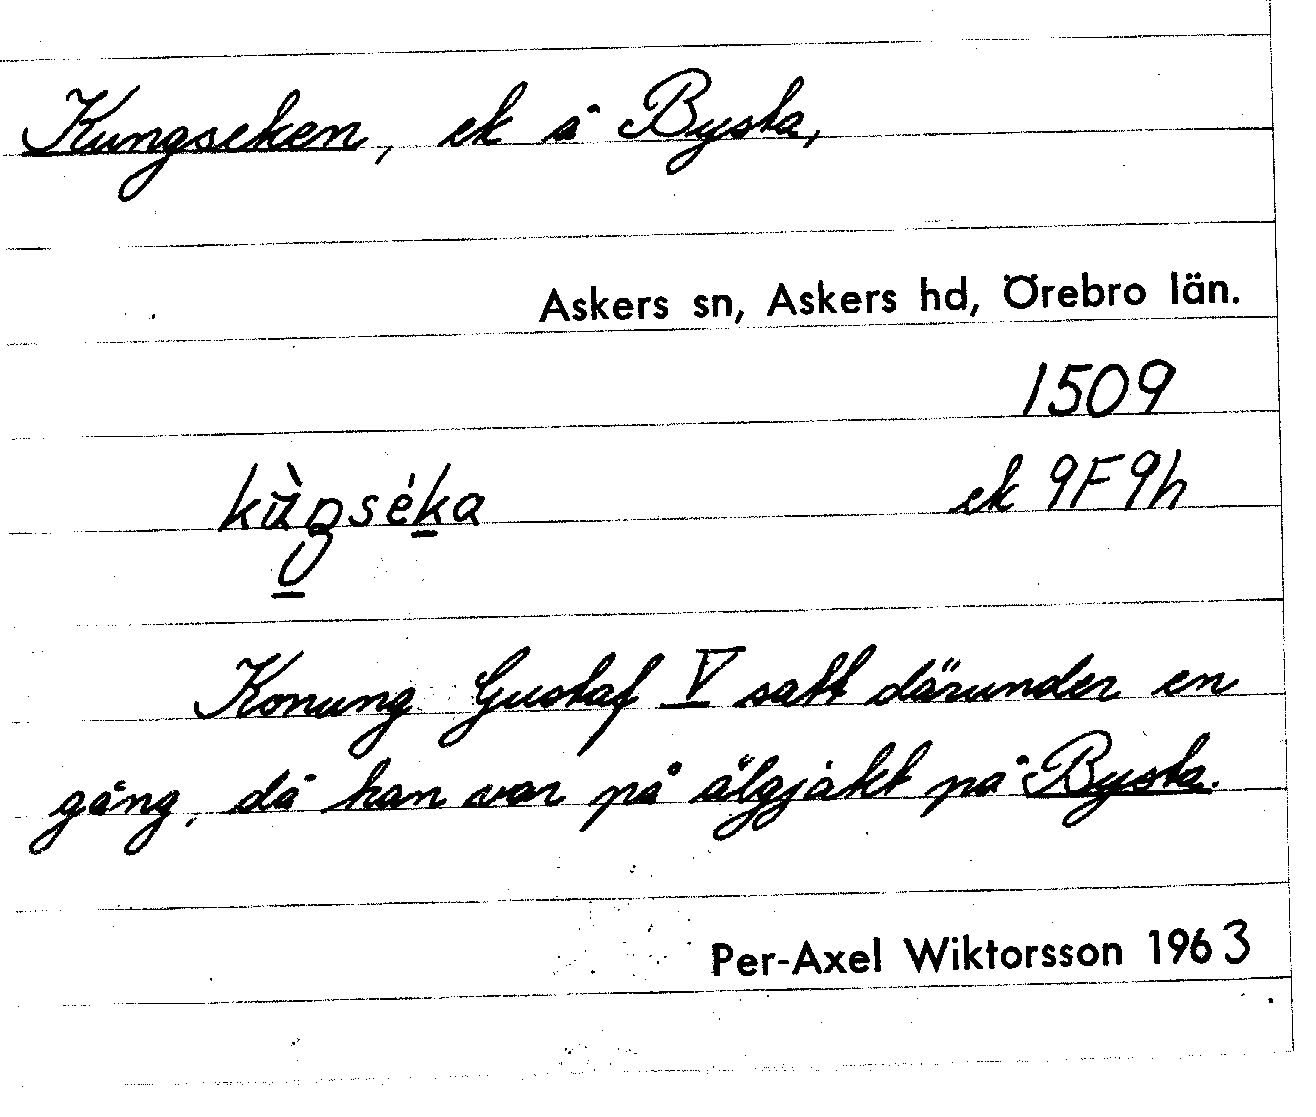 Kungseken, ek å Bysta,
Askers sn, Askers hd, Örebro län.
1509
ek 9F9h
Konung Gustaf V satt därunder en
gång, då han var på älgjakt på Bysta.
Per-Axel Wiktorsson 1963